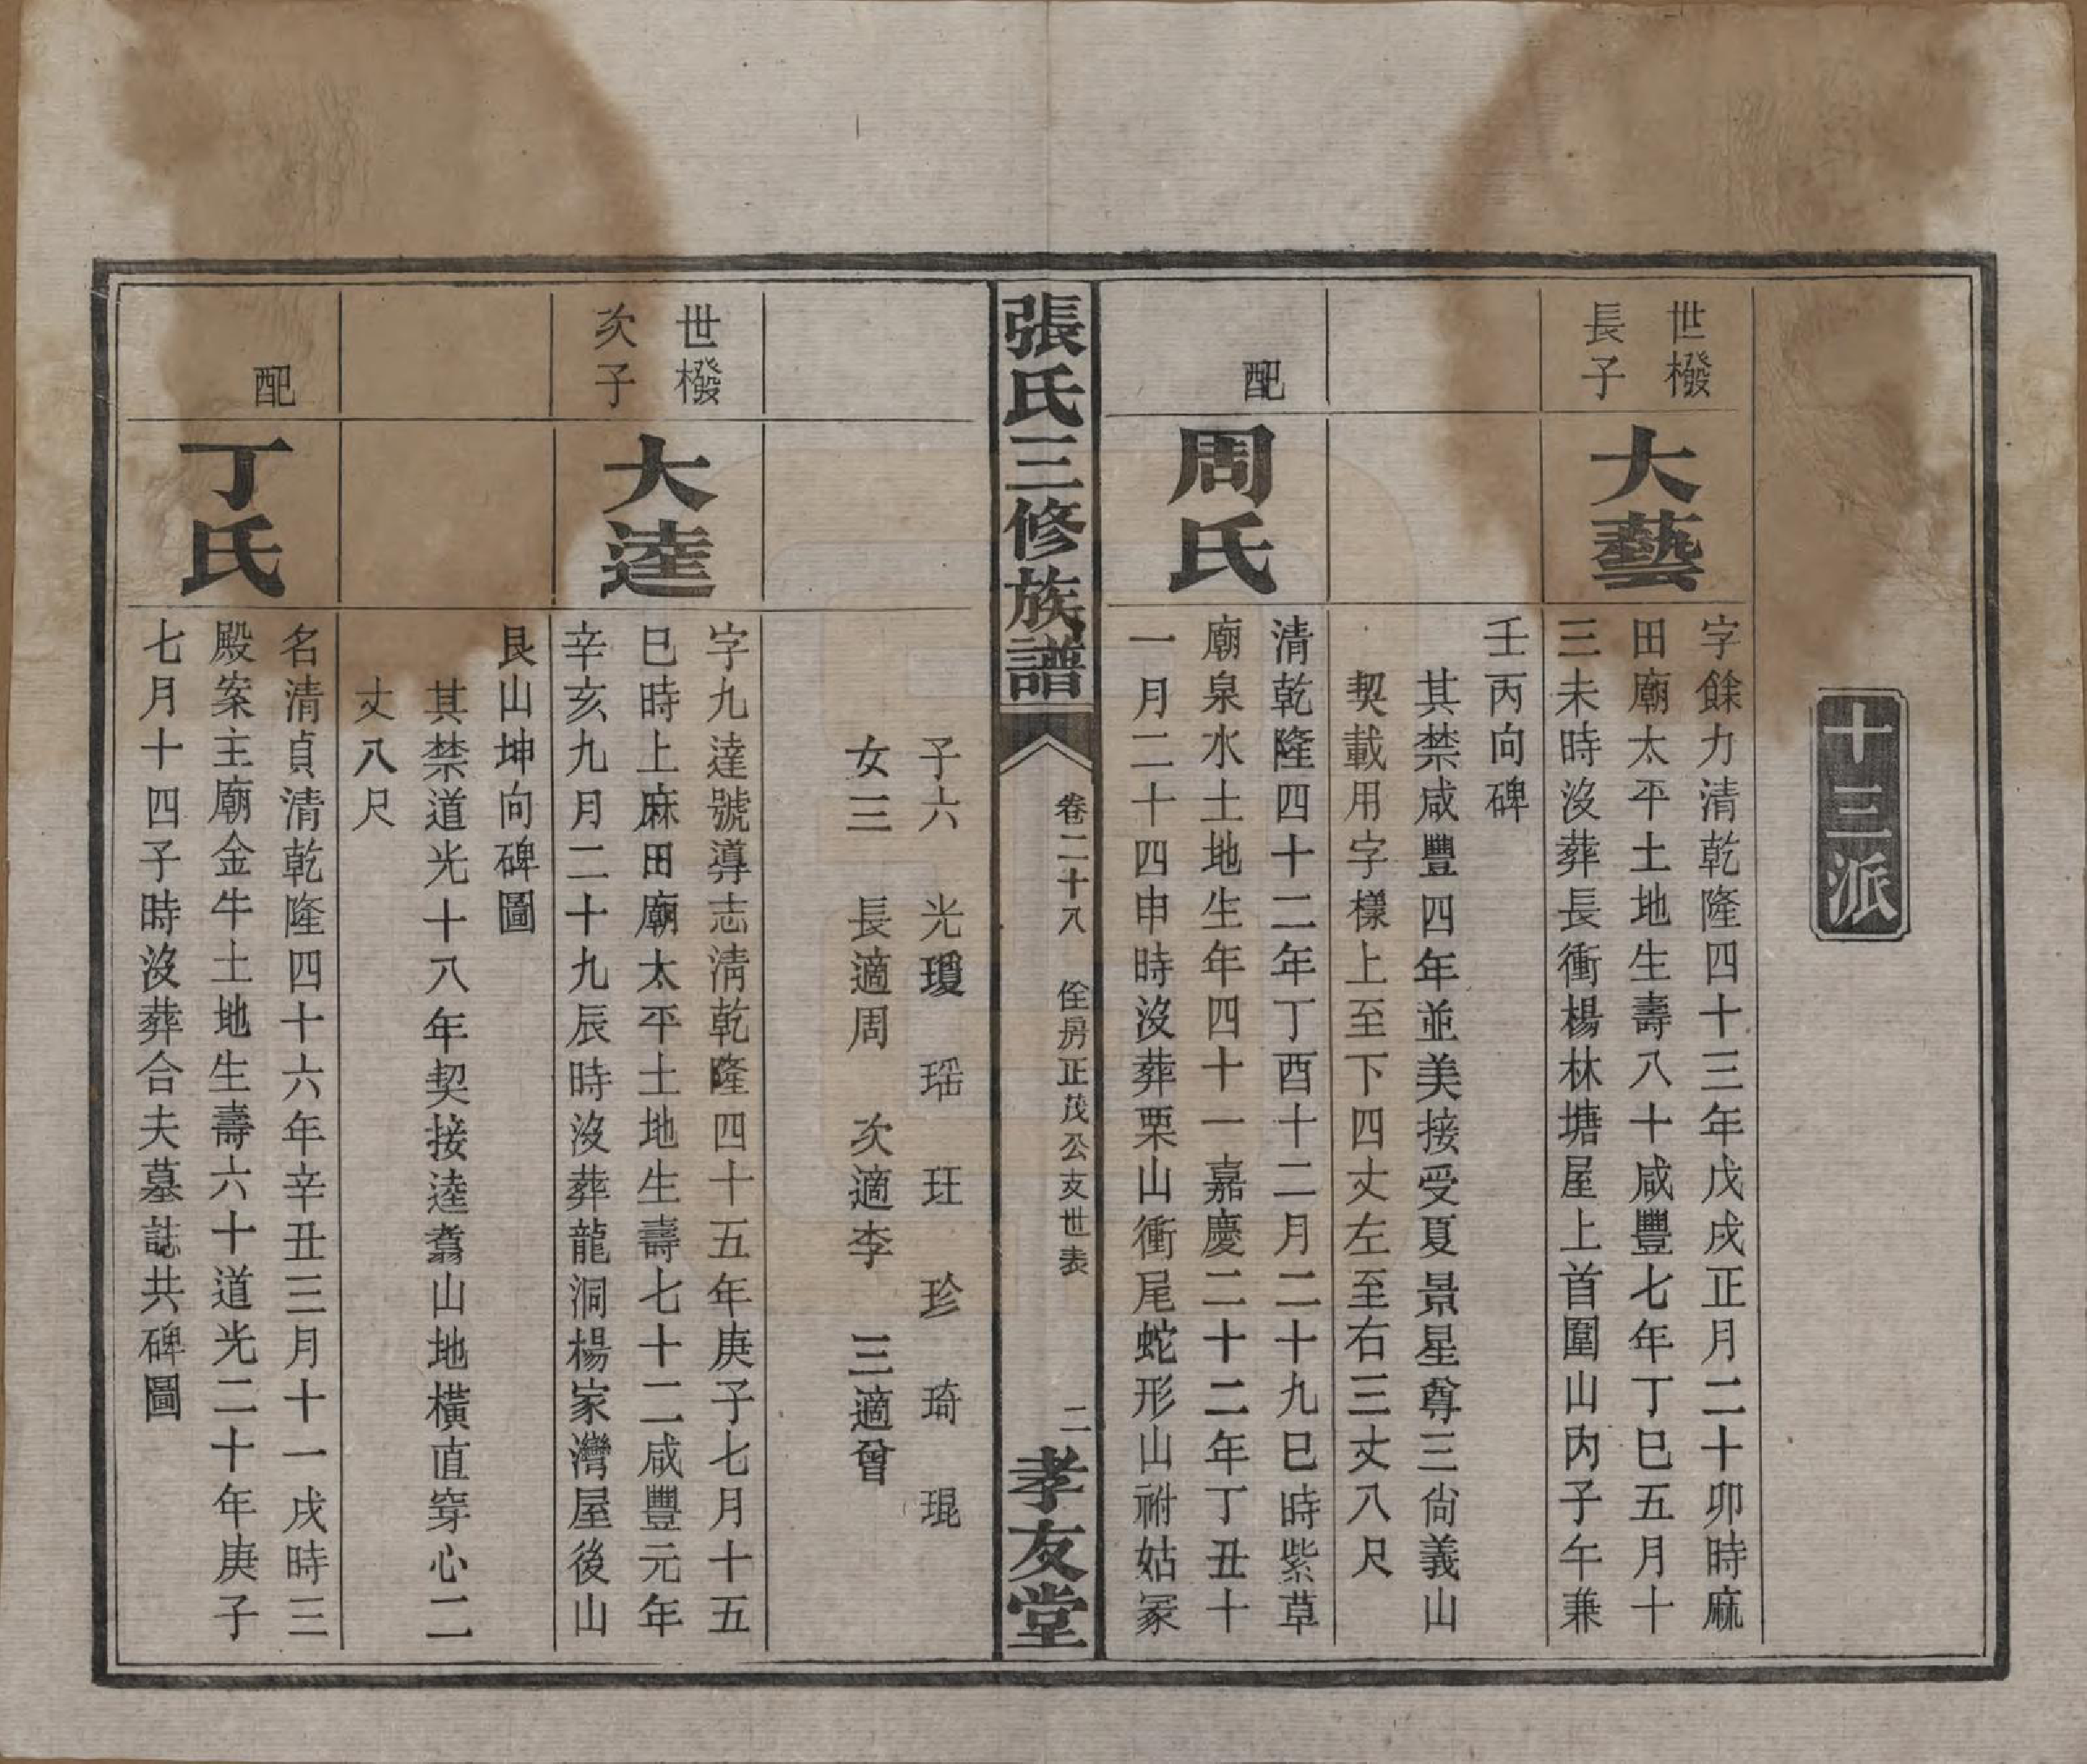 十三派
世橃
長子
大藝
字餘力清乾隆四十三年戊戌正月二十卯時麻
田廟太平土地生壽八十咸豐七年丁巳五月十
三未時沒葬長衝楊林塘屋上首圍山內子午兼
壬丙向碑
其禁咸豐四年並美接受夏景星尊三尙義山
契載用字樣上至下四丈左至右三丈八尺
配
周氏
清乾隆四十二年丁酉十二月二十九巳時紫草
廟泉水土地生年四十一嘉慶二十二年丁丑十
一月二十四申時沒葬栗山衝尾蛇形山祔姑冢
張氏三修族譜
卷二十八 佺房正茂公支世表
二
孝友堂
子六 光瓊 瑶 玨 珍 琦 琨
女三 長適周 次適李 三適曾
世橃
次子
大逵
字九達號導志清乾隆四十五年庚子七月十五
巳時上麻田廟太平土地生壽七十二咸豐元年
辛亥九月二十九辰時沒葬龍洞楊家灣屋後山
艮山坤向碑圖
其禁道光十八年契接逵翥山地橫直穿心二
丈八尺
配
丁氏
名清貞清乾隆四十六年辛丑三月十一戌時三
殿案主廟金牛土地生壽六十道光二十年庚子
七月十四子時沒葬合夫墓誌共碑圖